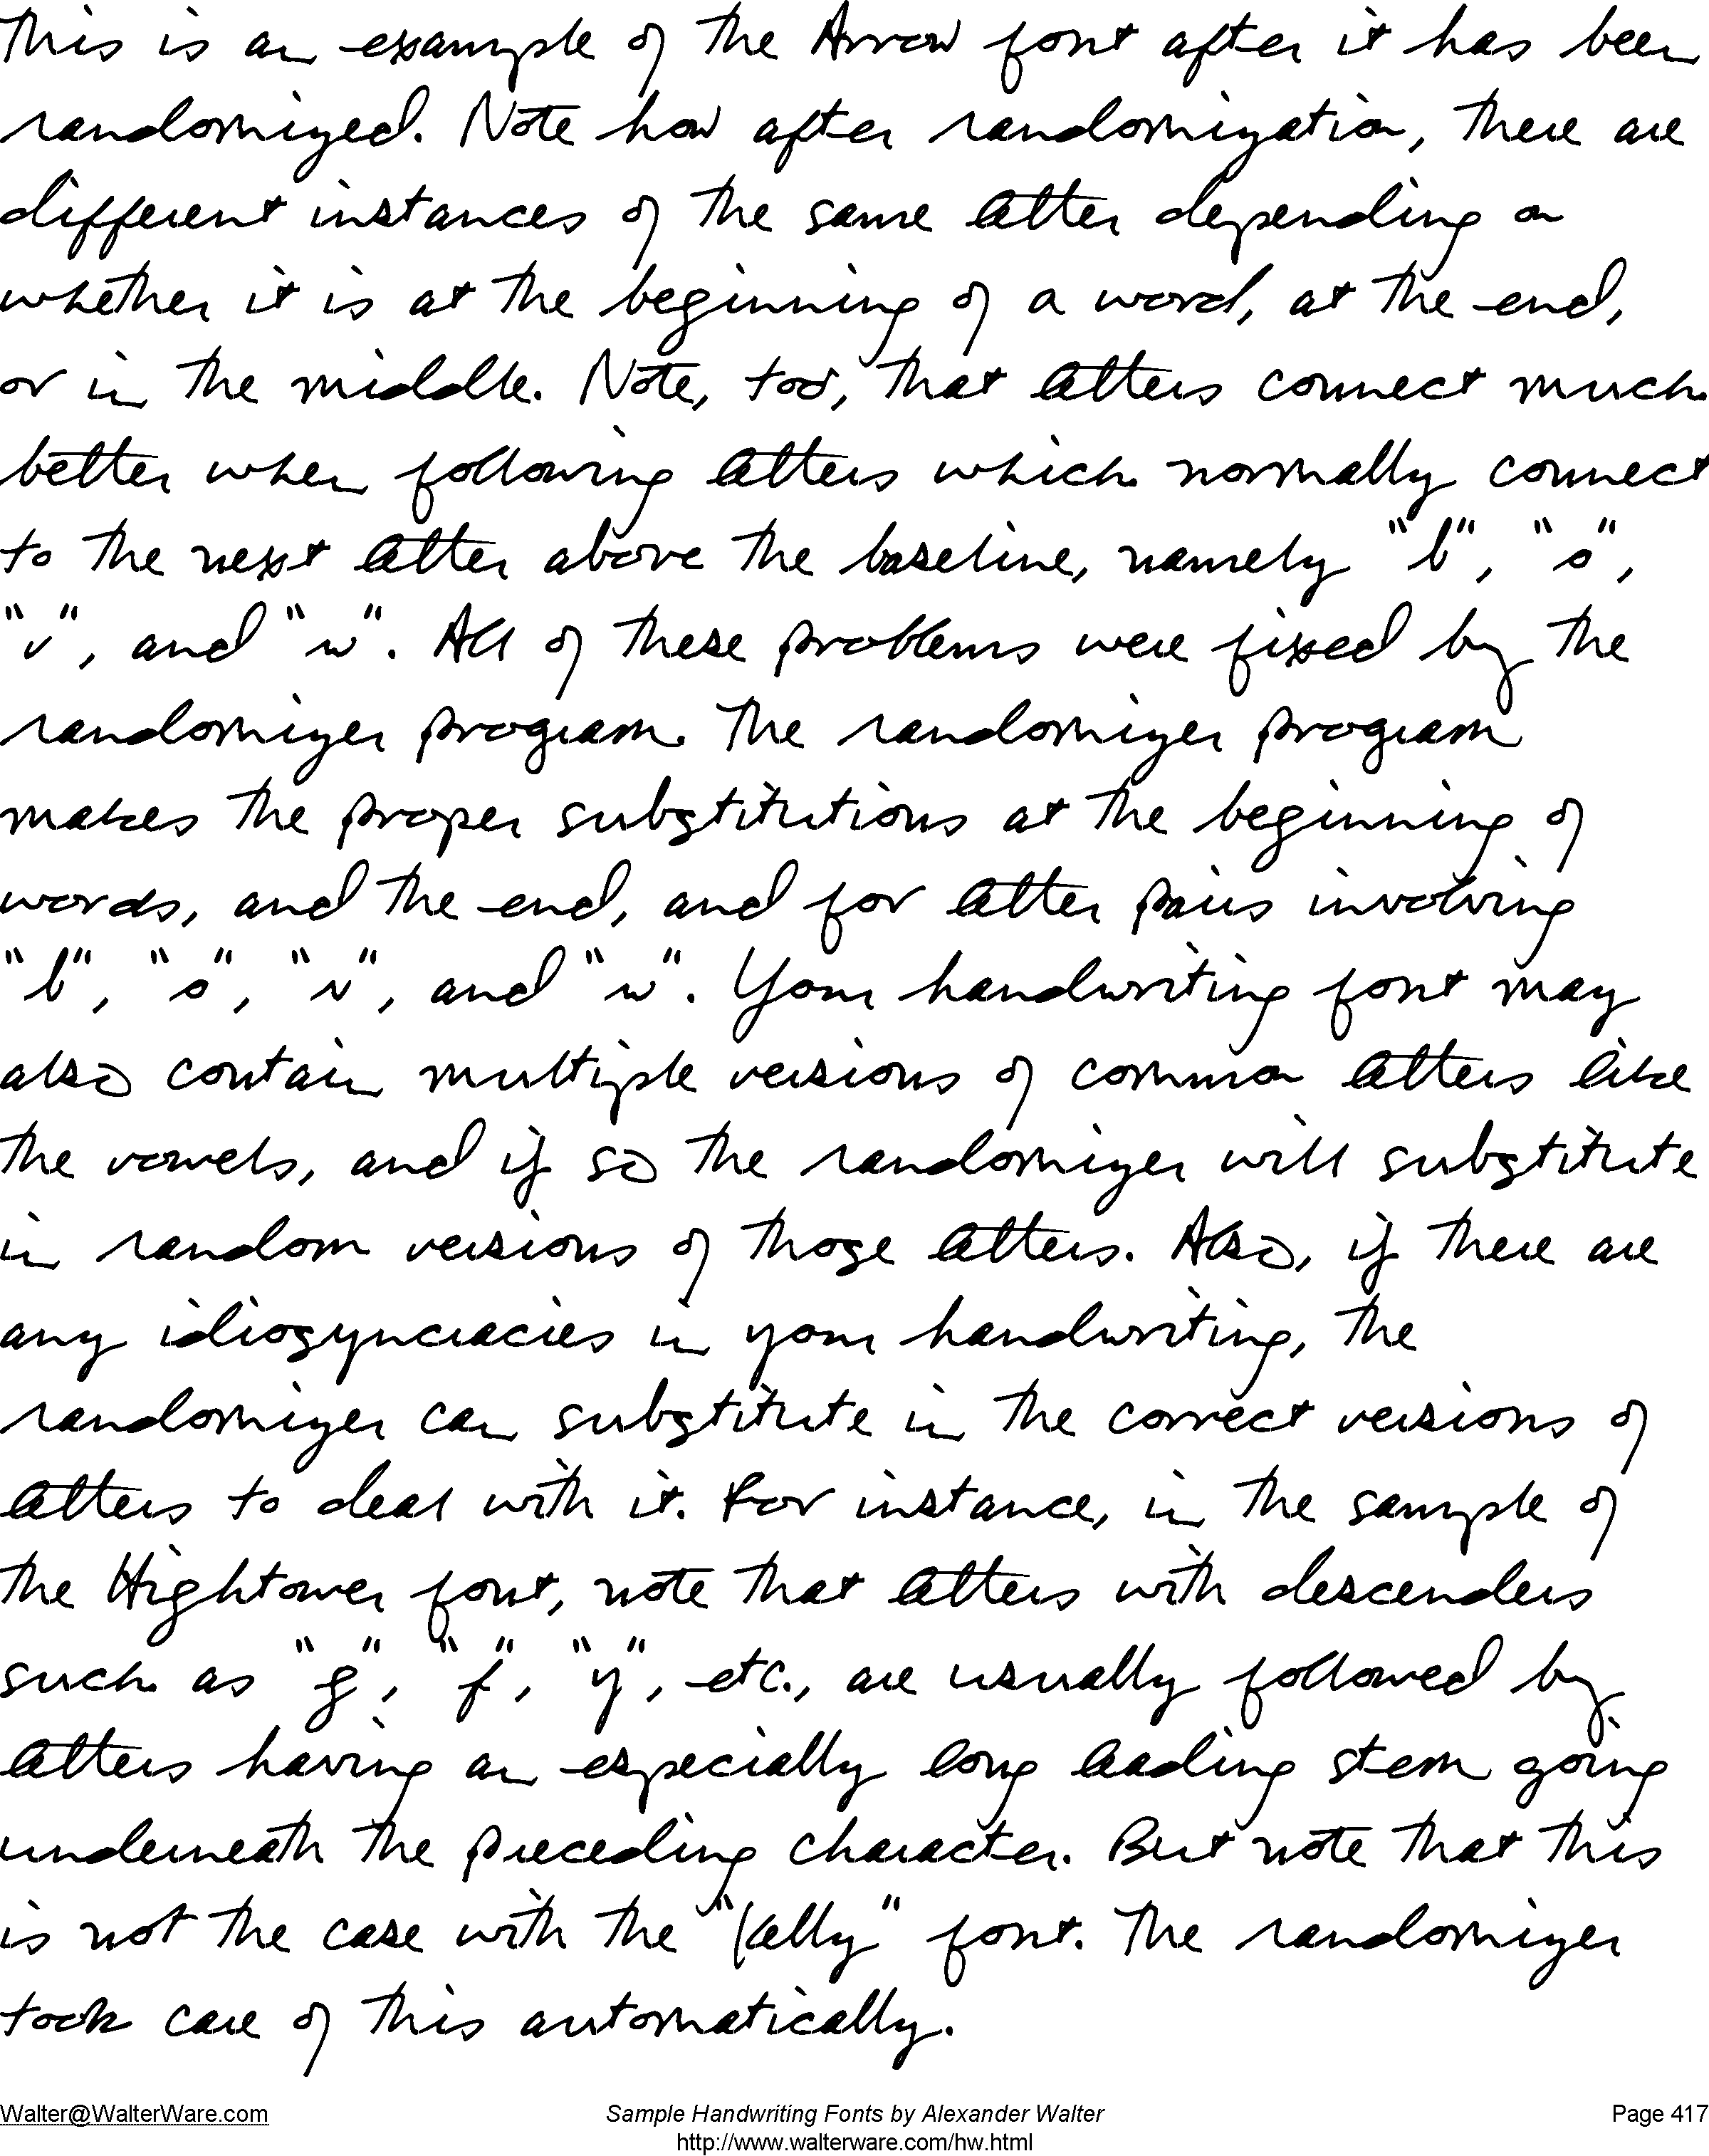 This is an example of the Arrow font after it has been
randomized. Note how after randomization, there are
different instances of the same letter depending on
whether it is at the beginning of a word, at the end,
or in the middle. Note, too, that letters connect much
better when following letters which normally connect
to the next letter above the baseline, namely "b", "o",
"v", and "w". All of these problems were fixed by the
randomizer program. The randomizer program
makes the proper substitutions at the beginning of
words, and the end, and for letter pairs involving
"b", "o", "v", and "w". Your handwriting font may
also contain multiple versions of common letters like
the vowels, and if so the randomizer will substitute
in random versions of those letters. Also, if there are
any idiosyncracies in your handwriting, the
randomizer can substitute in the correct versions of
letters to deal with it. For instance, in the sample of
the Hightower font, note that letters with descenders
such as "g", "f", "y", etc., are usually followed by
letters having an especially long leading stem going
underneath the preceding character. But note that this
is not the case with the "Kelly" font. The randomizer
took care of this automatically.
Walter@WalterWare.com Sample Handwriting Fonts by Alexander Walter Page 417
http://www.walterware.com/hw.html